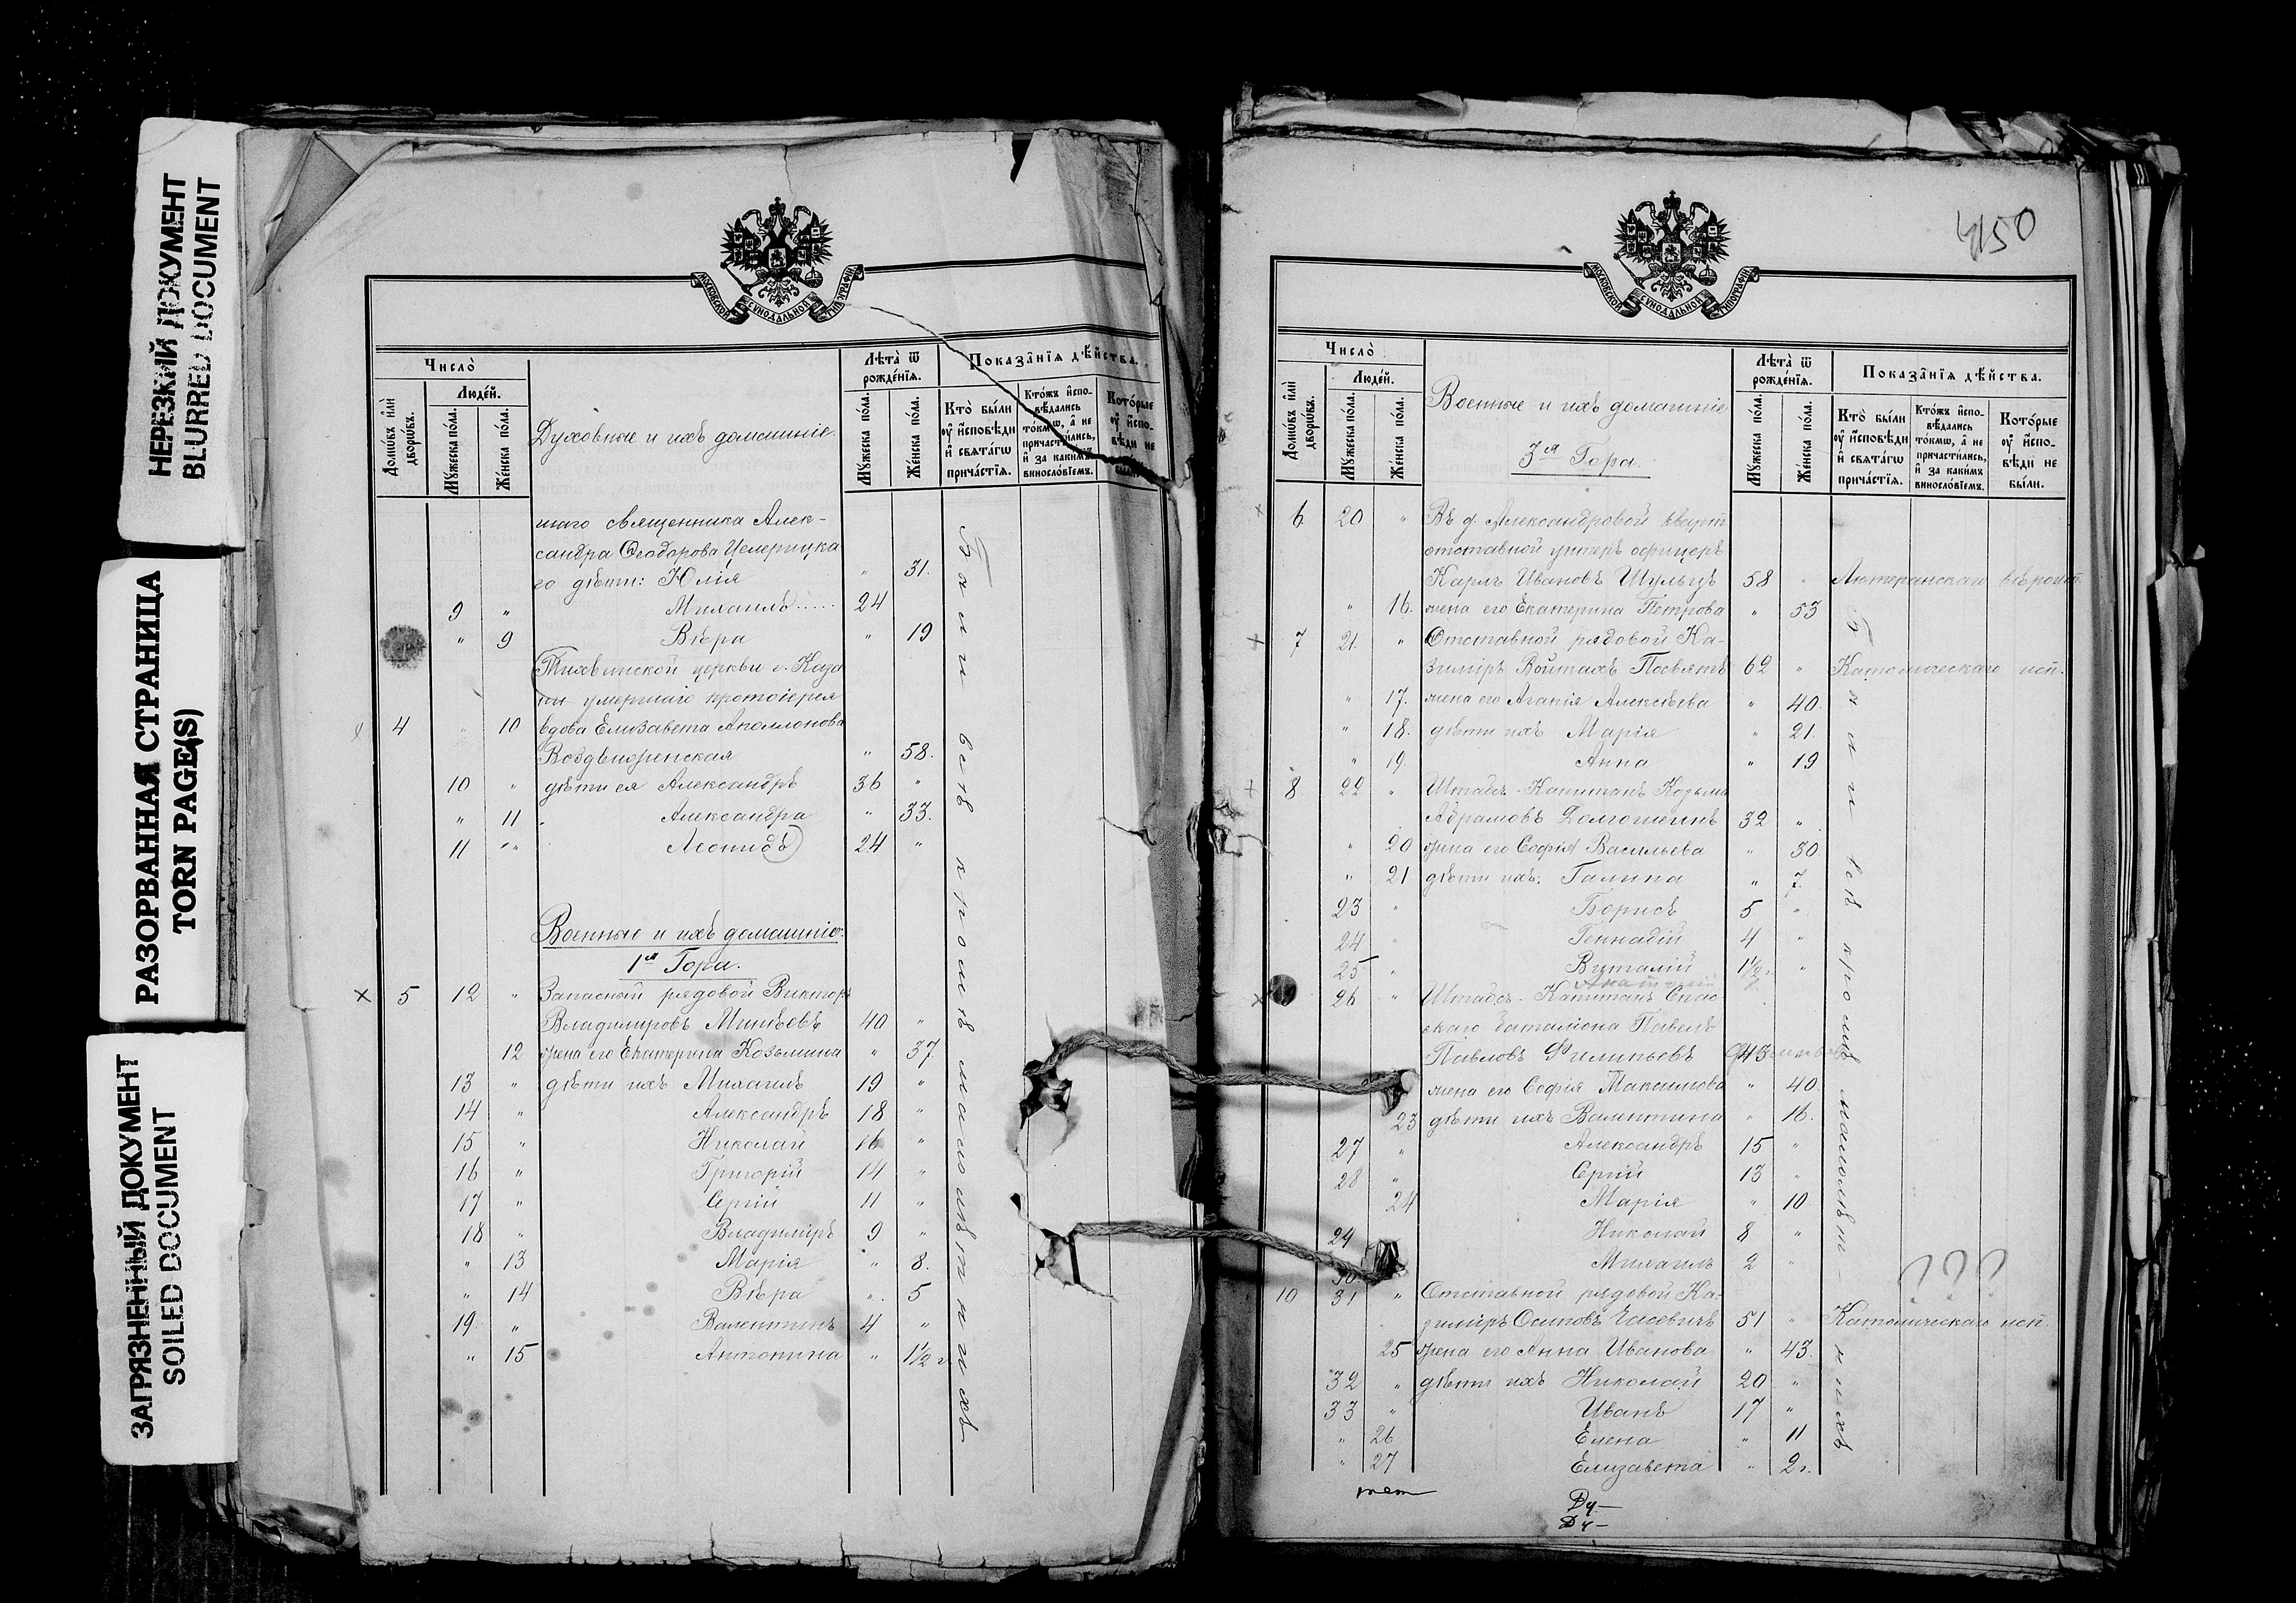 НЕРЕЗКИЙ ДОКУМЕНТ
BLURRED DOCUMENT
РАЗОРВАННАЯ СТРАНИЦА
TORN PAGE(S)
ЗАГРЯЗНЕННЫЙ ДОКУМЕНТ
SOILED DOCUMENT
МОСКОВСКОЙ СѴНОДАЛЬНОЙ ТИПОГРАФІИ
Число̀
Лѣта̀ ѿ рожде́нїя.
Показа̑нїя дѣ́йства.
Домѡ́въ и҆лѝ дворѡ́въ.
Люде́й.
Мꙋ́жеска по́ла.
Же́нска по́ла.
Духовные и ихъ домашніе.
Мꙋ́жеска по́ла.
Же́нска по́ла.
Кто̀ бы́ли ᲂу҆ и҆́сповѣди и҆ свѧта́гѡ прича́стїѧ.
Кто́жъ и҆спо-вѣ́дались то́кмѡ, а҆ не причасти́лись, и҆ за каки́мъ винословїемъ.
Кото́рые ᲂу҆ и҆спо-вѣди не бы́ли.
шаго священника Алек-
сандра Ѳеодорова Целерицка
го дѣти: Юлія " 31.
9 " Михаилъ 24
" 9 Вѣра " 19
Тихвинской церкви г. Каза
ни умершаго протоіерея
4 " 10 вдова Елизавета Аполлонова
Воздвиженская " 58.
10 " дѣти ея Александръ 36 "
" 11 Александра " 33.
11 " Леонидъ 24 "
Военные и ихъ домашніе.
1я Гора.
5 12 " Запасный рядовой Викторъ
Владиміровъ Минѣевъ 40 "
12 жена его Екатерина Козьмина " 37
13 " дѣти ихъ Михаилъ 19 "
14 " Александръ 18 "
15 " Николай 16 "
16 " Григорій 14 "
17 " Сергій 11 "
18 " Владиміръ 9 "
" 13 Марія " 8.
" 14 Вѣра " 5
19. " Валентинъ 4 "
" 15 Антонина " 1½ г.
Были всѣ кромѣ малолѣтнихъ
4150
МОСКОВСКОЙ СѴНОДАЛЬНОЙ ТИПОГРАФІИ
Число̀
Лѣта̀ ѿ рожде́нїя.
Показа̑нїя дѣ́йства.
Домѡ́въ и҆лѝ дворѡ́въ.
Люде́й.
Мꙋ́жеска по́ла.
Же́нска по́ла.
Военные и ихъ домашніе
3я Гора.
Мꙋ́жеска по́ла.
Же́нска по́ла.
Кто̀ бы́ли ᲂу҆ и҆́сповѣди и҆ свѧта́гѡ прича́стїѧ.
Кто́жъ и҆спо-вѣ́дались то́кмѡ, а҆ не причасти́лись, и҆ за каки́мъ винословїемъ.
Кото́рые ᲂу҆ и҆спо-вѣди не бы́ли.
6 20 " Въ д. Александровой кварт
отставной унтеръ офицеръ
Карлъ Ивановъ Шульцъ 58 " Лютеранскаго вѣроисп.
" 16. жена его Екатерина Петрова " 53
7 21. " Отставной рядовой Ка-
зиміръ Войтахъ 62 " Католическаго исп.
" 17. жена его Агапія Алексѣева " 40.
" 18. дѣти ихъ Марія " 21
" 19. Анна " 19
8. 22 " Штабсъ-Капитанъ Козьма
Абрамовъ Долгошеинъ 32 "
" 20 жена его Софія Васильева " 30.
" 21 дѣти ихъ: Галина " 7.
23 " Борисъ 5 "
24 " Геннадій 4 "
25 " Виталій 1½ "
26 " Штабсъ-Капитанъ Спас-
скаго баталіона Павелъ
Павловъ Филипьевъ 43
жена его Софія Максимова " 40.
23 дѣти ихъ Валентина " 16.
27 " Александръ 15 "
28 " Сергій 13 "
24 Марія " 10
Николай 8 "
30 Михаилъ 2 "
10 31 " Отставной рядовой Ка-
зиміръ Осиповъ 51 " Католическаго исп.
25 жена его Анна Иванова " 43.
32 " дѣти ихъ Николай 20 "
33 " Иванъ 17 "
" 26 Елена " 11
" 27 Елизавета " 2 г.
Были всѣ кромѣ малолѣт-нихъ
???